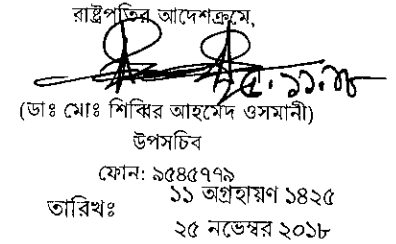 রাষ্ট্রপতির আদেশক্রমে,
(ডাঃ মোঃ শিব্বির আহমেদ ওসমানী)
উপসচিব
ফোন: ৯৫৪৫৭৭৯
১১ অগ্রহায়ণ ১৪২৫
তারিখঃ
২৫ নভেম্বর ২০১৮